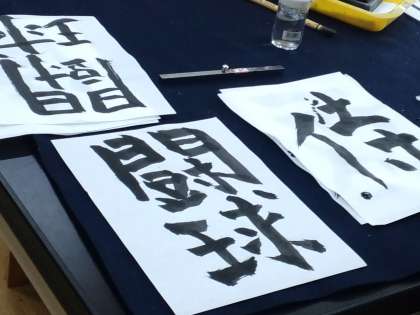 闘球
闘球